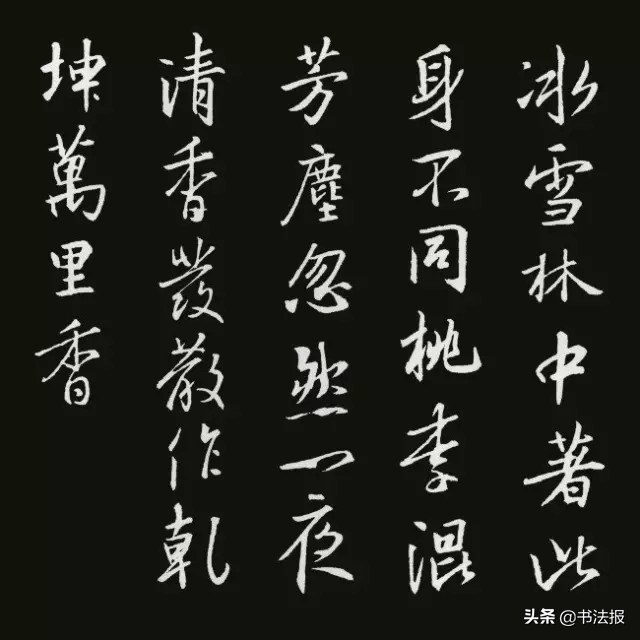 冰雪林中著此
身不同桃李混
芳塵忽然一夜
清香發散作乾
坤萬里香
头条 @书法报